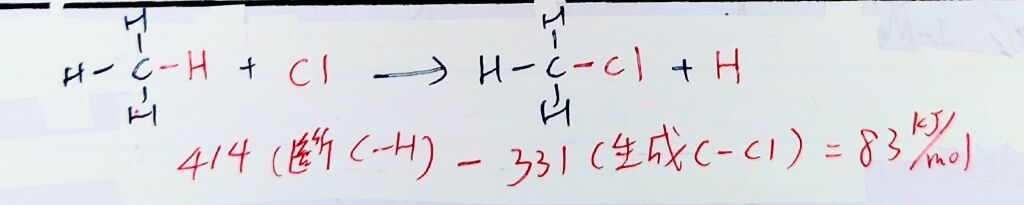 H
H-C-H + Cl → H-C-Cl + H
H
414 (斷 C-H) - 331 (生成 C-Cl) = 83 kJ/mol